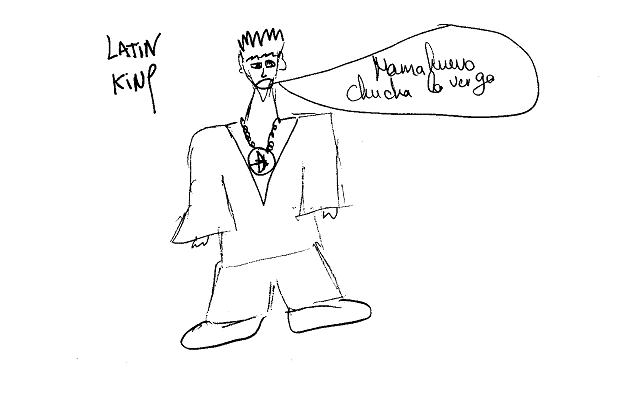 LATIN
KING
Mamahuevo
chucha la verga